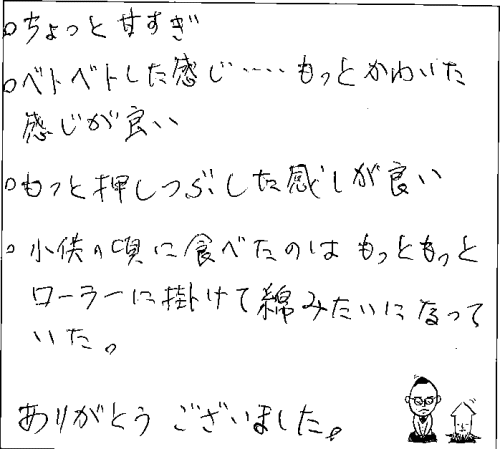 ○ちょっと甘すぎ
○ベトベトした感じ……もっとかわいた
感じが良い
○もっと押しつぶした感じが良い
○小供の頃に食べたのは もっともっと
ローラーに掛けて綿みたいになって
いた。
ありがとう ございました。